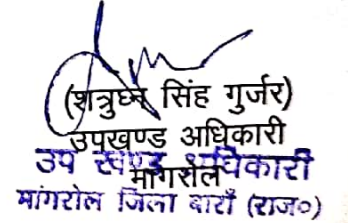 (शत्रुघ्न सिंह गुर्जर)
उपखण्ड अधिकारी
मांगरोल
उप खण्ड अधिकारी
मांगरोल जिला बाराँ (राज०)